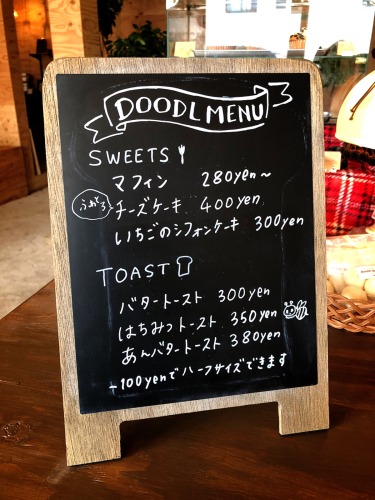 DOODL MENU
SWEETS
マフィン 280yen〜
チーズケーキ 400yen
いちごのシフォンケーキ 300yen
TOAST
バタートースト 300yen
はちみつトースト 350yen
あんバタートースト 380yen
+100yenでハーフサイズできます